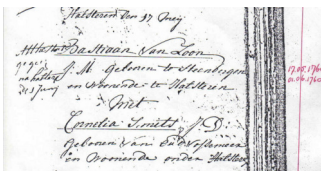 Halsteren den 17 Meij
Bastiaan Van Loon
J. M. geboren te Steenbergen
en Woonende te Halsteren
met
Cornelia Smits J. D.
geboren van Oud Vossemeer
en Woonende onder Halsteren
17.05.1760
01.06.1760